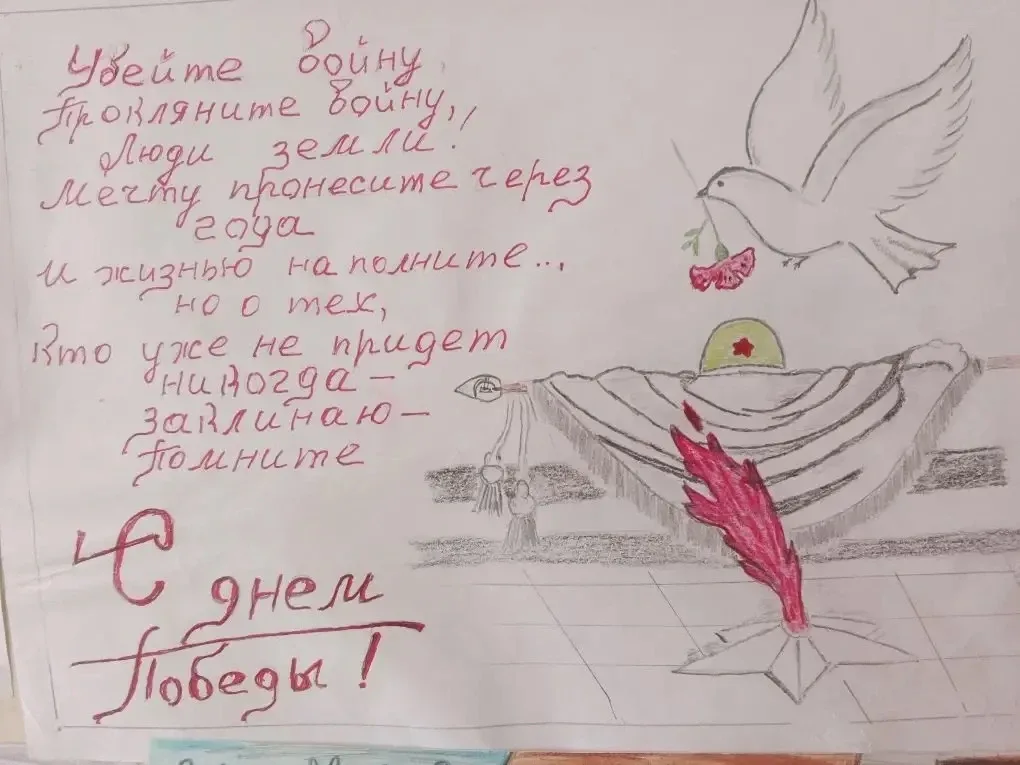 Убейте войну,
Прокляните войну,
Люди земли!
Мечту пронесите через
года
и жизнью наполните...
но о тех,
Кто уже не придет
никогда –
заклинаю –
помните
С днем
Победы!